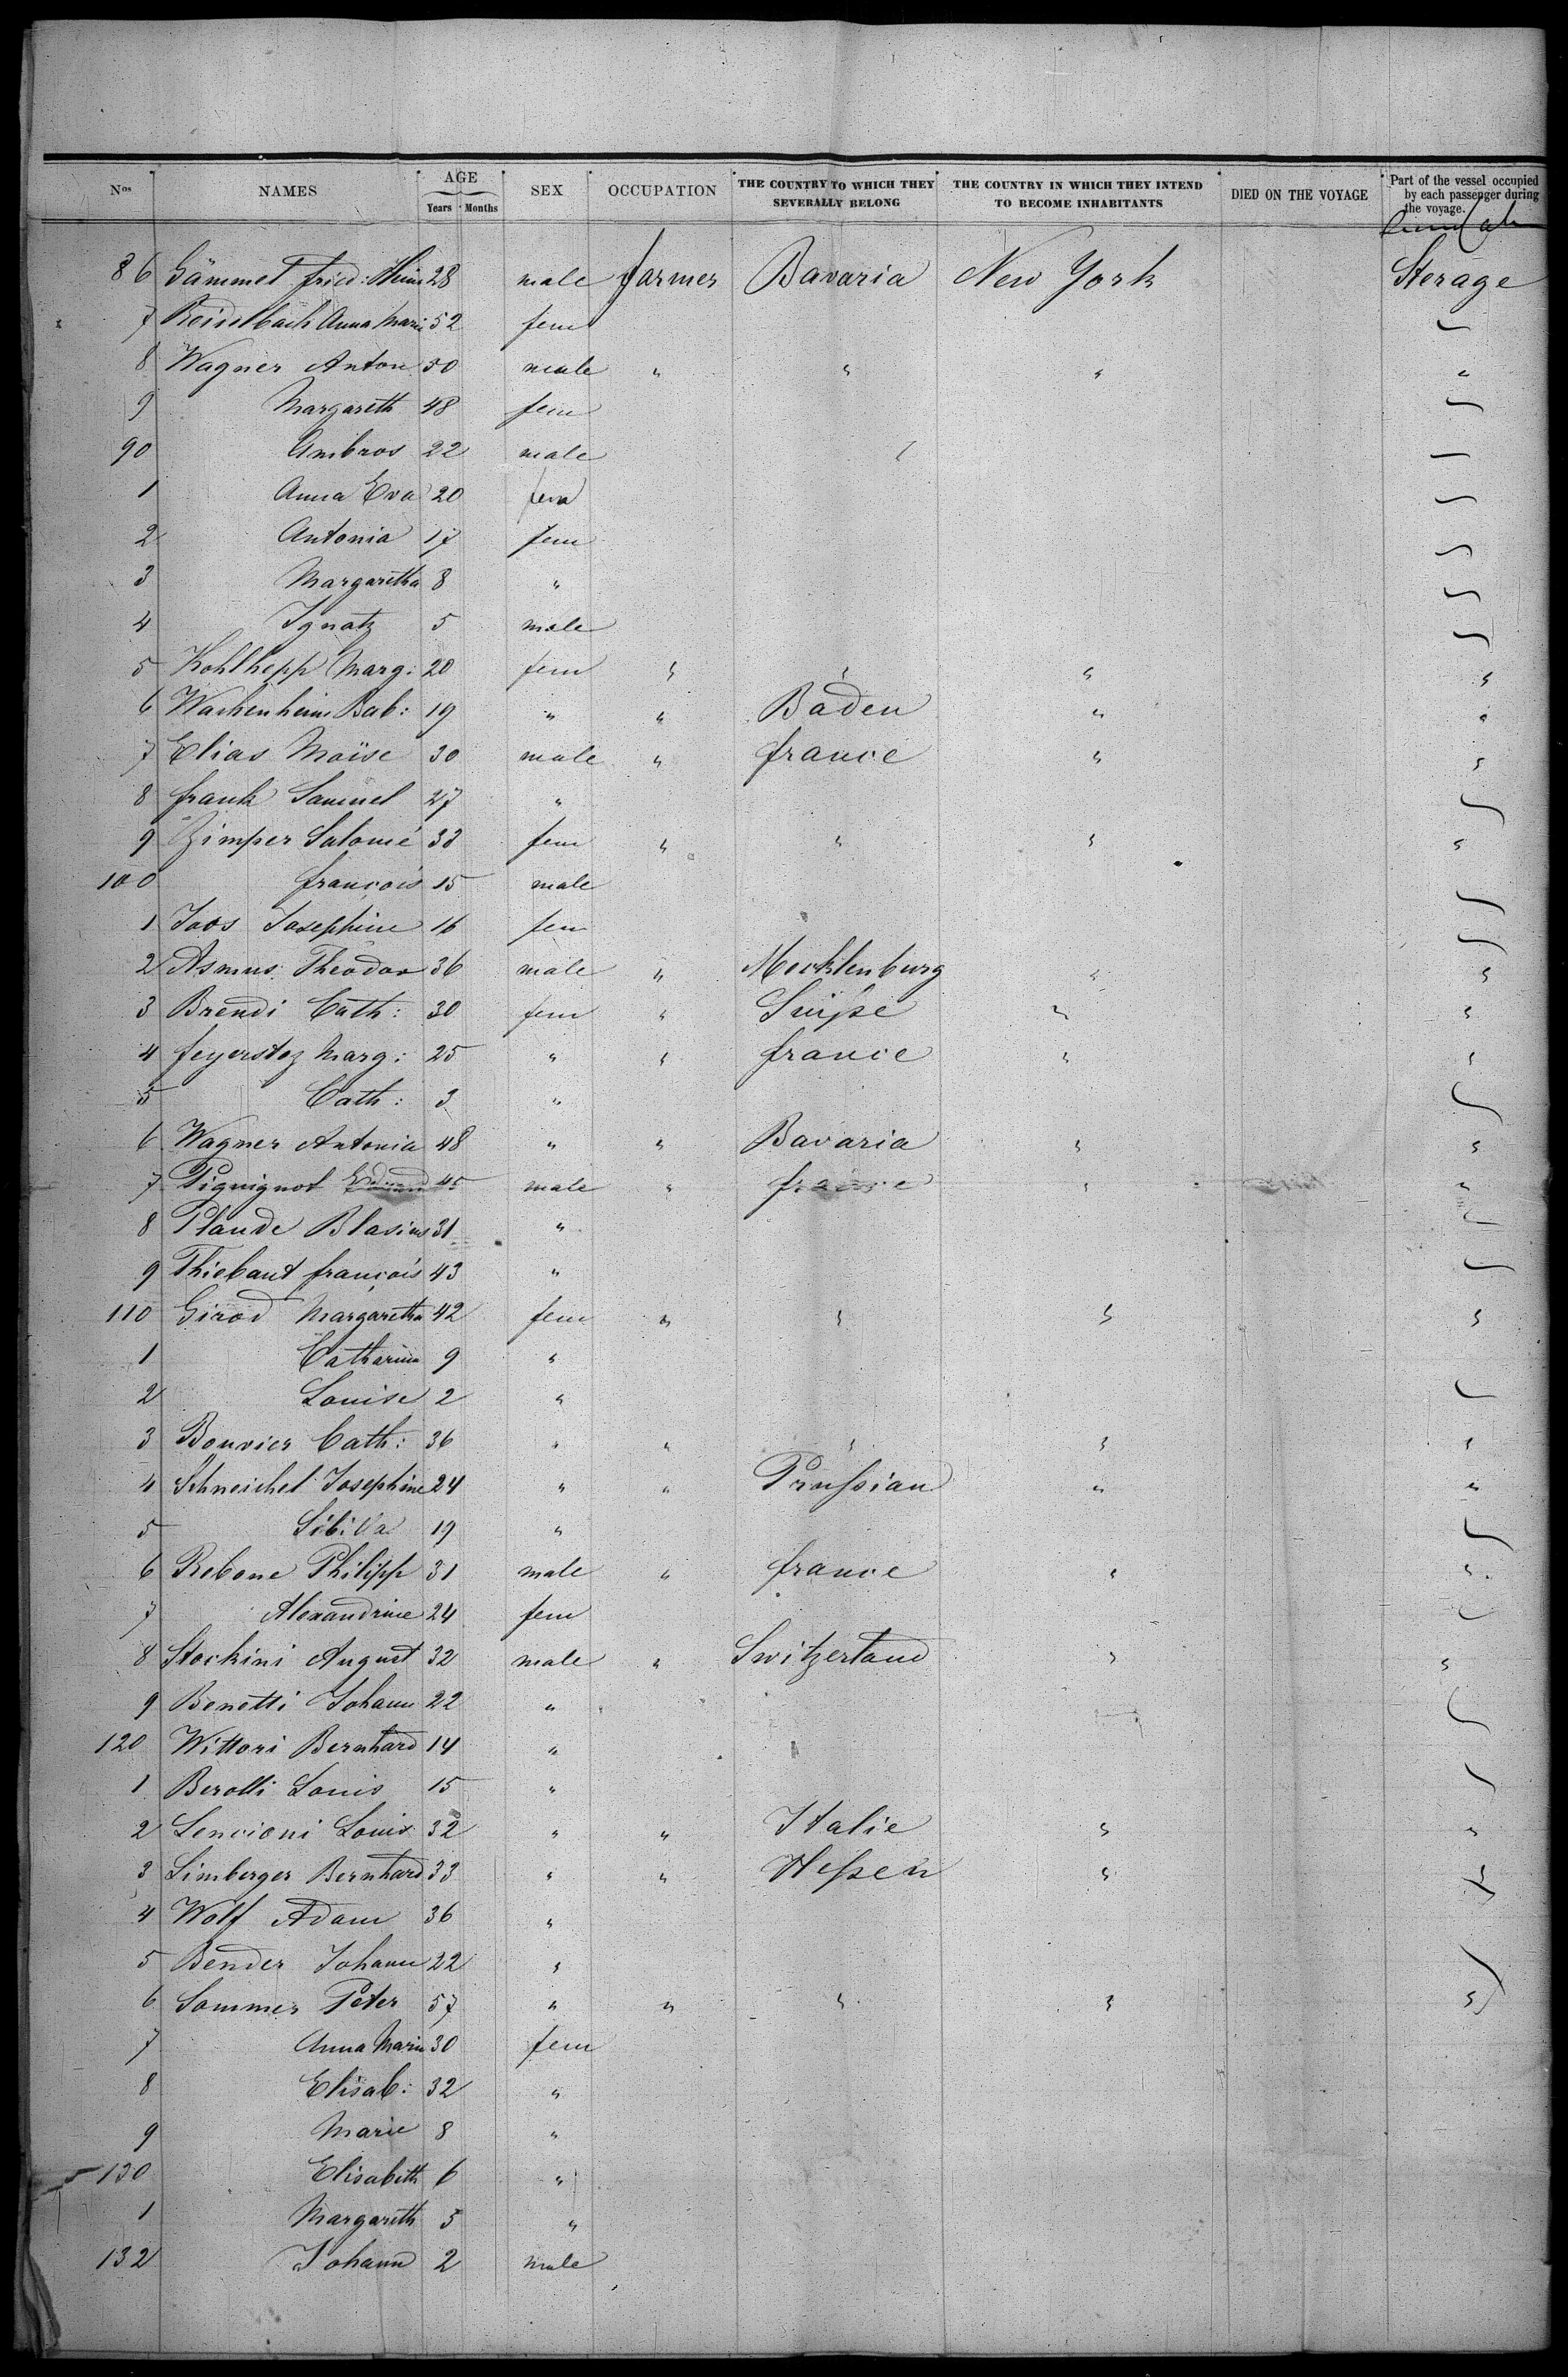 Nos NAMES AGE SEX OCCUPATION THE COUNTRY TO WHICH THEY SEVERALLY BELONG THE COUNTRY IN WHICH THEY INTEND TO BECOME INHABITANTS DIED ON THE VOYAGE Part of the vessel occupied by each passenger during the voyage.
Years Months
86 Gämmel fried: Heinr 28 male farmer Bavaria New York Sterage
7 Reidelbach Anna Marie 52 fem
8 Wagner Anton 50 male " " " "
9 Margareth 48 fem
90 Ambros 22 male
1 Anna Eva 20 fem
2 Antonia 17 fem
3 Margaretha 8 "
4 Ignatz 5 male
5 Kohlhepp Marg: 20 fem " " " "
6 Wachenheim Bab: 19 " " Baden " "
7 Elias Moïse 30 male " france " "
8 frank Samuel 27 "
9 Zimper Salomé 38 fem " " " "
100 françois 15 male
1 Joos Josephine 16 fem
2 Asmus Theodor 36 male " Mecklenburg " "
3 Brendi Cath: 30 fem " Suisse " "
4 feyerstoz Marg: 25 " " france " "
5 Cath: 3 "
6 Wagner Antonia 48 " " Bavaria " "
7 Piquignot Edmund 45 male " france " "
8 Plaude Blasius 31 "
9 Thiebaut françois 43 "
110 Girod Margaretha 42 fem " " " "
1 Catharina 9 "
2 Louise 2 "
3 Bouvier Cath: 36 " " " " "
4 Schneichel Josephine 24 " " Prussian " "
5 Sibilla 19 "
6 Rebone Philipp 31 male " france " "
7 Alexandrine 24 fem
8 Stockini August 32 male " Switzerland " "
9 Benetti Johann 22 "
120 Wittori Bernhard 14 "
1 Berolli Louis 15 "
2 Lencioni Louis 32 " " Italie " "
3 Limberger Bernhard 33 " " Hessen " "
4 Wolf Adam 36 "
5 Bender Johann 22 "
6 Sommer Peter 57 " " " " "
7 Anna Marie 30 fem
8 Elisab: 32 "
9 Marie 8 "
130 Elisabeth 6 "
1 Margareth 3 "
132 Johann 2 male